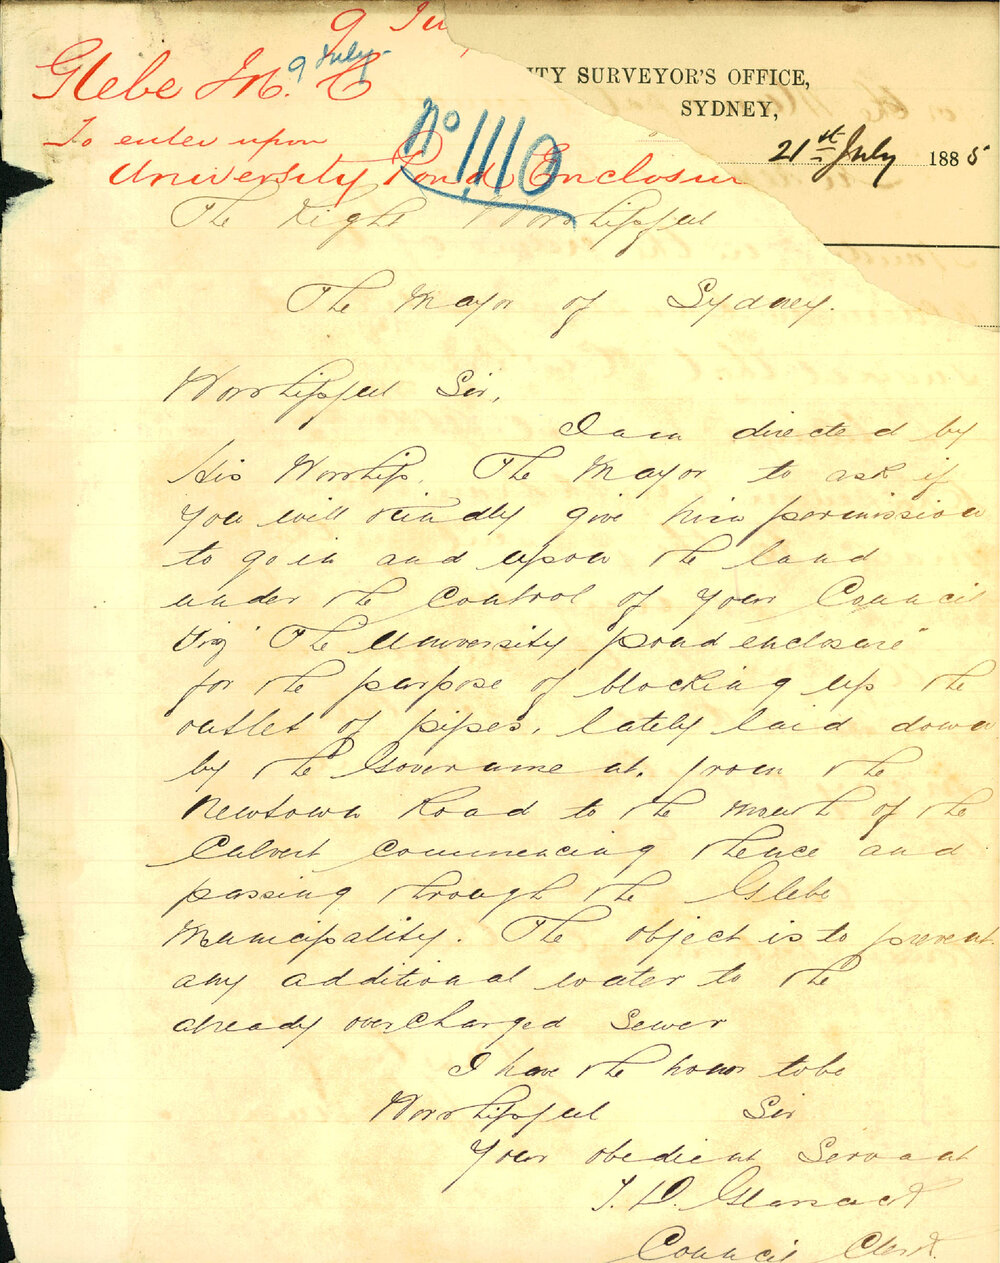 9 Ju
Glebe M. C
9 July
To enter upon
University Pond Enclosur
No 1110
ITY SURVEYOR'S OFFICE,
SYDNEY,
21st July 1885
The Right Worshipful
The Mayor of Sydney.
Worshipful Sir,
I am directed by
His Worship. The Mayor to ask if
you will kindly give him permission
to go in and upon the land
under the control of your Council
Viz "The University pond enclosure"
for the purpose of blocking up the
outlet of pipes, lately laid down
by the Government, from the
Newtown Road to the mouth of the
Culvert commencing thence and
passing through the Glebe
Municipality. The object is to prevent
any additional water to the
already overcharged Sewer
I have the honor to be
Worshipful Sir
Your obedient Servant
T. D.
Council Clerk.